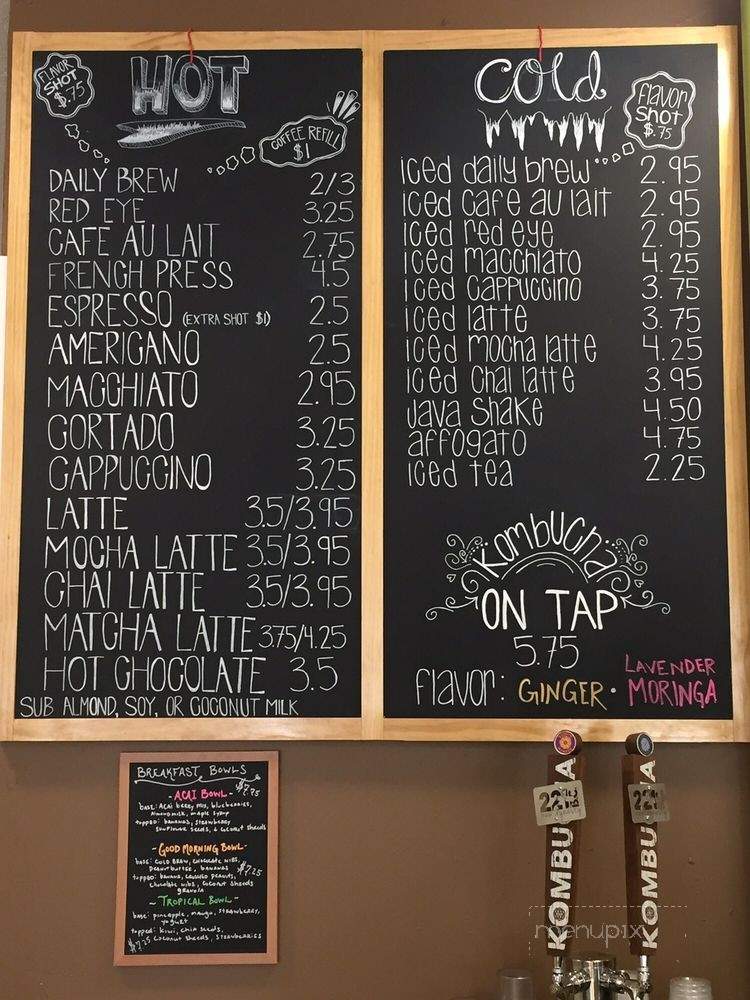 FLAVOR SHOT $.75
HOT
COFFEE REFILL $1
DAILY BREW 2/3
RED EYE 3.25
CAFE AU LAIT 2.75
FRENCH PRESS 4.5
ESPRESSO (EXTRA SHOT $1) 2.5
AMERICANO 2.5
MACCHIATO 2.95
CORTADO 3.25
CAPPUCCINO 3.25
LATTE 3.5/3.95
MOCHA LATTE 3.5/3.95
CHAI LATTE 3.5/3.95
MATCHA LATTE 3.75/4.25
HOT CHOCOLATE 3.5
SUB ALMOND, SOY, OR COCONUT MILK
Cold
Flavor Shot $.75
iced daily brew 2.95
iced cafe au lait 2.95
iced red eye 2.95
iced macchiato 4.25
iced cappuccino 3.75
iced latte 3.75
iced mocha latte 4.25
iced chai latte 3.95
java shake 4.50
affogato 4.75
iced tea 2.25
Kombucha
ON TAP
5.75
flavor: GINGER • LAVENDER MORINGA
BREAKFAST BOWLS
- ACAI BOWL - $7.75
base: Acai berry mix, blueberries,
Almond milk, maple syrup
topped: bananas, strawberry
sunflower seeds, & coconut shreds
- GOOD MORNING BOWL -
base: cold brew, chocolate nibs,
Peanut butter, bananas $7.25
topped: banana, crushed peanuts,
chocolate nibs, coconut shreds
granola
~ TROPICAL BOWL ~
base: pineapple, mango, strawberry,
yogurt
topped: kiwi, chia seeds,
$7.25 coconut shreds, strawberries
KOMBUCHA
KOMBUCHA
menupix